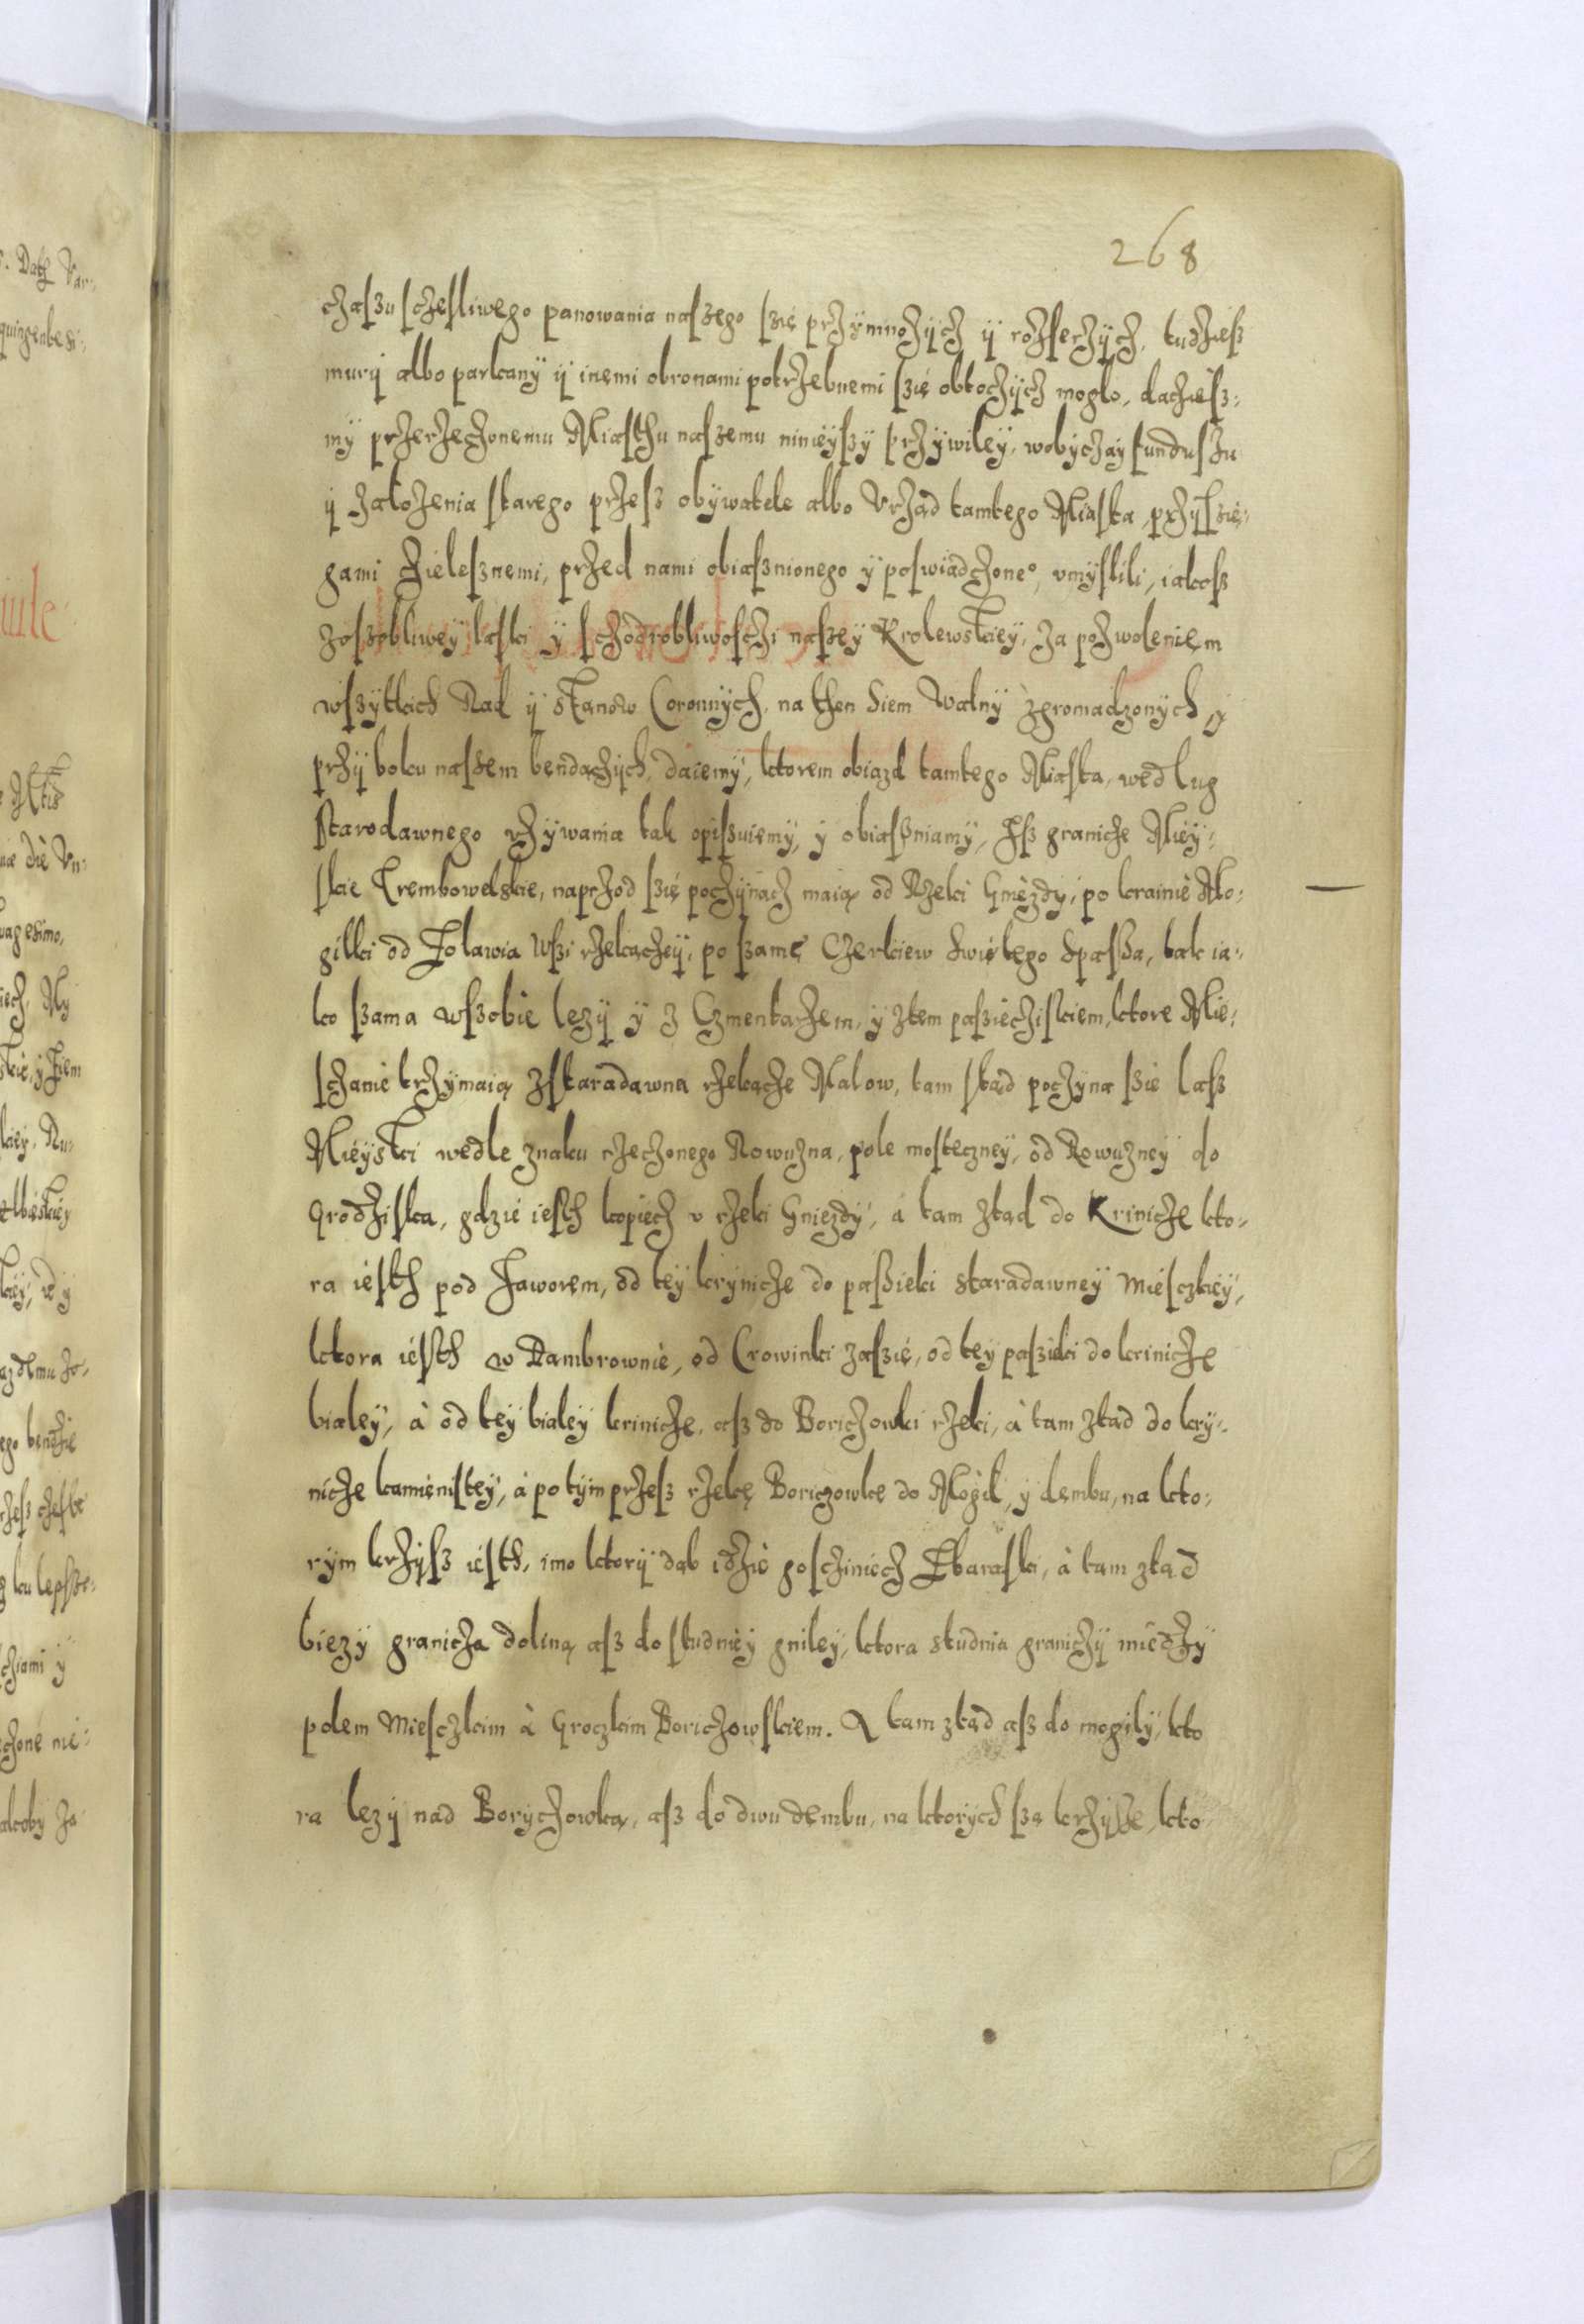 268
czaſzu ſczeſliwego panowania naſzego ſzię przÿmnożÿcz ÿ rożſerzÿcz, tudzieſz
murÿ albo parkanÿ ÿ inemi obronami potrzebnemi ſzię obtoczÿcz moglo, daczieſz:
mÿ przerzeczonemu Miaſthu naſzemu ninieÿſzÿ przÿwileÿ, wobyczay funduſzu
ÿ założenia ſtarego przeſz obÿwatele albo Vrząd tamtego Miaſta przÿſzię:
gami Zieleſznemi, przed nami obiaſznionego ÿ poſwiadczone°, vmÿſlili, iakoſz
zoſzobliwey laſki ÿ ſczodrobliwoſczi naſzeÿ Krolewskieÿ, za pozwoleniem
wſzÿtkich Rad ÿ stanow Coronnÿch, na then Siem Walnÿ zgromadzonÿch ÿ
przÿ boku naſzem bendączÿch, daiemÿ, ktorem obiazd tamtego Miaſta, wedlug
Starodawnego vżÿwania tak opiſzuiemÿ, ÿ obiaſzniamÿ, Iſz granicze Mieÿ:
ſkie Trembowelskie, naprzod ſzię poczÿnacz maią od Rzeki Gniezdÿ, po krainie Mo:
gilki od Zolawia Wſzi rzekączeÿ, po ſzamę Czerkiew Swiętego Spaſſa, tak ia:
ko ſzama wſzobie lezÿ ÿ z Czmentarzem, ÿ ztem paſziecziſkiem, ktore Mie:
ſczanie trzÿmaią zſtaradawna rzekącze Malow, tam ſkąd poczÿna ſzie laſz
Mieÿski wedle znaku rzeczonego Rowuzna, pole moſteczneÿ, od Rowuzneÿ do
Grodziſka, gdzie ieſth kopiecz v rzeki Gniezdÿ, à tam ztąd do Krinicze kto:
ra ieſth pod Jaworem, od teÿ krÿnicze do paſſieki staradawneÿ Mieſczkieÿ,
ktora ieſth w Dambrownie, od Crowinki zaſzię, od teÿ paſzieki do krinicze
bialeÿ, à od teÿ bialeÿ krinicze, aſz do Boriczowki rzeki, à tam ztad do krÿ:
nicze kamienisteÿ, à potÿm przeſz rzekę Boriczowkę do Mogil, ÿ dembu, na kto:
rÿm krzÿſz ieſth, imo ktorÿ dab idzie goſcziniecz Zbaraſki, à tam ztąd
biezÿ granicza doliną aſz do ſtudnieÿ gnileÿ, ktora studnia graniczÿ miedzÿ
polem Mieſczkim à Groczkim Boriczowſkiem. A tam ztąd aſz do mogilÿ, kto
ra lezÿ nad Borÿczowką, aſz do dwu dembu, na ktorÿch ſzą krzÿſſe, kto